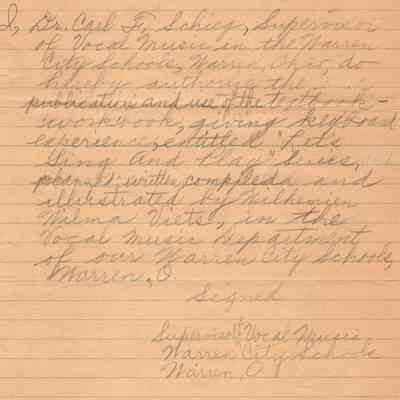 I, Dr. Carl F. Schieg, Supervisor
of Vocal Music in the Warren
City Schools, Warren, Ohio, do
hereby authorize the
publication and use of the textbook-
workbook, giving keyboard
experience, entitled "Lets
Sing And Play" Series,
planned, written, compileda and
illustrated by Wilhemien
Wilma Viets, in the
Vocal Music Department
of our Warren City Schools,
Warren, O.
Signed
Supervisor of Vocal Music,
Warren City Schools
Warren, O